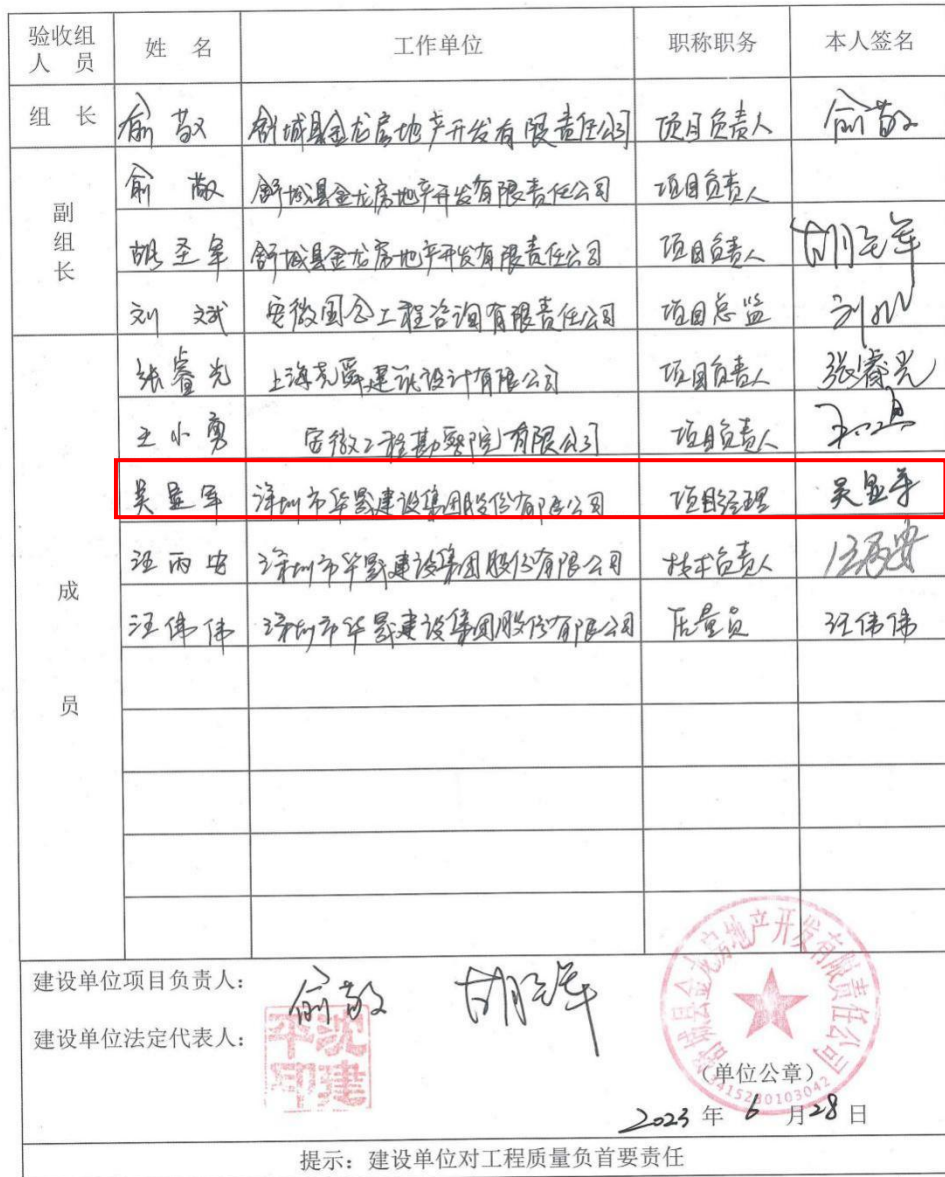 验收组人员 姓 名 工作单位 职称职务 本人签名
组 长 俞敬 舒城县金龙房地产开发有限责任公司 项目负责人 俞敬
副组长 俞敬 舒城县金龙房地产开发有限责任公司 项目负责人
胡圣军 舒城县金龙房地产开发有限责任公司 项目负责人 胡圣军
刘斌 安徽国合工程咨询有限责任公司 项目总监 刘
成员 张睿光 上海尧舜建筑设计有限公司 项目负责人 张睿光
王小勇 安徽工程勘察院有限公司 项目负责人
吴显军 深圳市华晟建设集团股份有限公司 项目经理 吴显军
汪丙安 深圳市华晟建设集团股份有限公司 技术负责人 汪丙安
汪伟伟 深圳市华晟建设集团股份有限公司 质量员 汪伟伟
建设单位项目负责人: 俞敬 胡圣军
建设单位法定代表人: 沈建平印
舒城县金龙房地产开发有限责任公司
(单位公章)
2023 年 6 月 28 日
提示: 建设单位对工程质量负首要责任